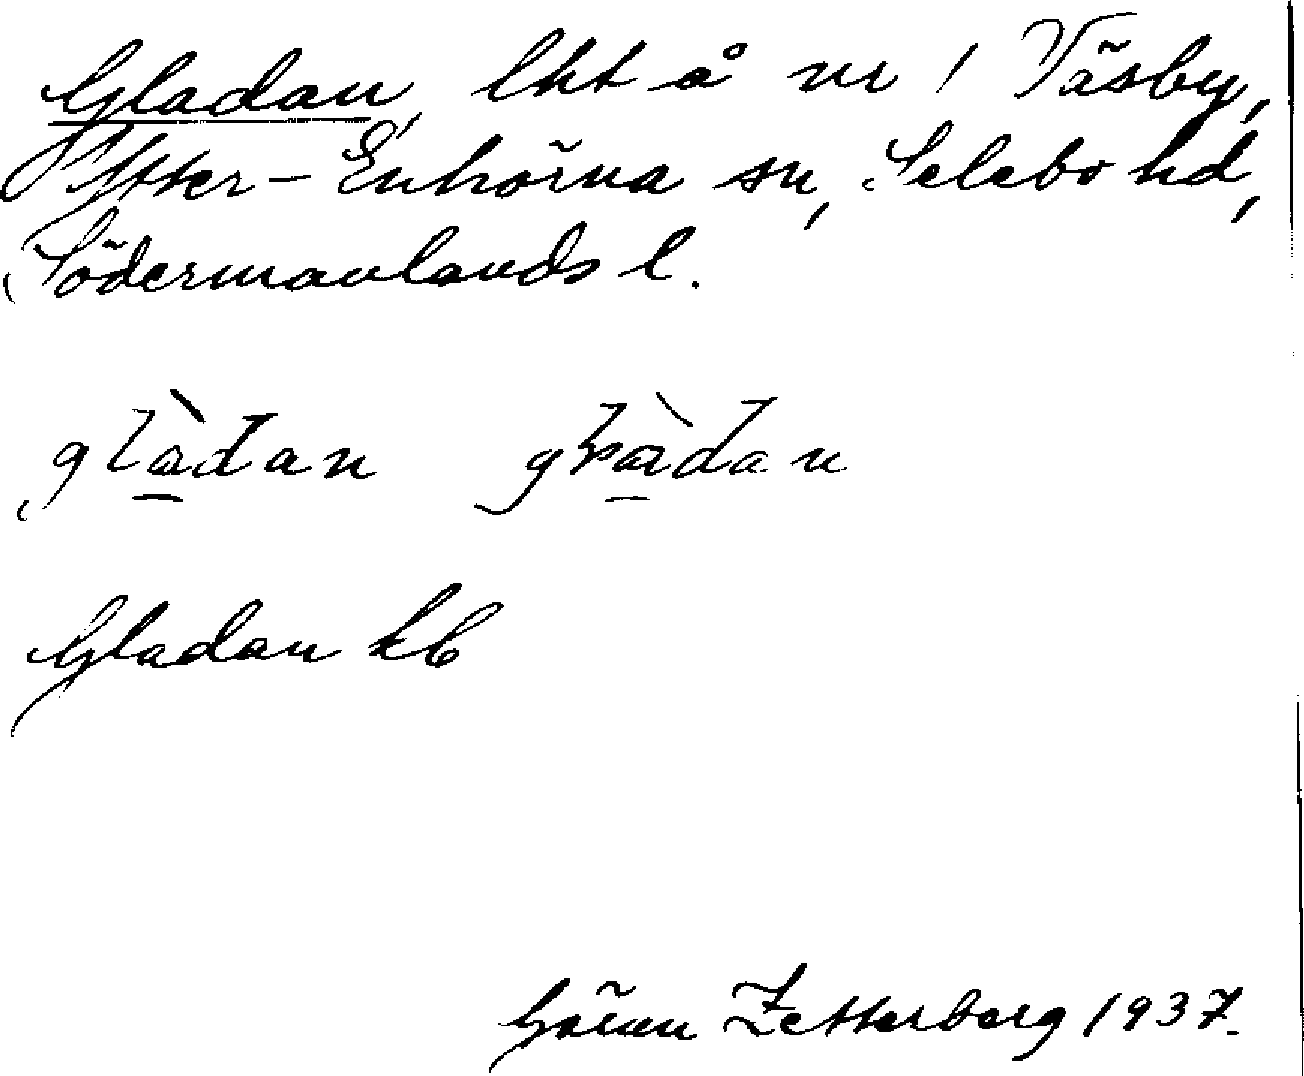 Gladan, lht å nr 1 Väsby,
Ytter-Enhörna sn, Selebo hd,
Södermanlands l.
glàdan gɫàdan
Gladan kb
Göran Zetterberg 1937.